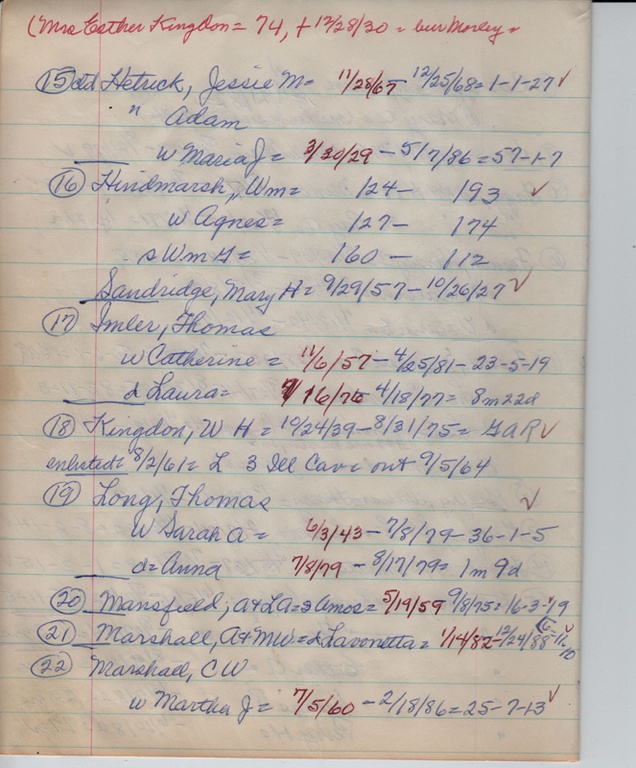 (Mrs Esther Kingdon = 74, + 12/28/30 = bur Morley =
15 dtd Hetrick, Jessie M = 11/28/67 12/25/68 = 1-1-27 ✓
" Adam
w Maria J = 3/30/29 - 5/7/86 = 57-1-7
16 Hindmarsh, Wm = 124 - 193 ✓
w Agnes = 127 - 174
s Wm H = 160 - 112
Sandridge, Mary H = 9/29/57 - 10/26/27 ✓
17 Imler, Thomas
w Catherine = 11/6/57 - 4/25/81 - 23-5-19
d Laura = 16/76 4/18/77 = 8m 22d
18 Kingdon, W H = 10/24/39 - 8/31/75 = GAR ✓
enlisted = 8/2/61 = L 3 Ill Cav = out 9/5/64
19 Long, Thomas ✓
w Sarah A = 6/3/43 - 7/8/79 - 36-1-5
d = Anna 7/8/79 - 8/17/79 = 1m 9d
20 Mansfield, A + LA = s Amos = 5/19/59 9/8/75 = 16-3-19 ✓
21 Marshall, A + MW = d Lavonetta = 1/14/82 - 12/24/88 - 11/10 ✓
22 Marshall, CW
w Martha J = 7/5/60 - 2/18/86 = 25-7-13 ✓